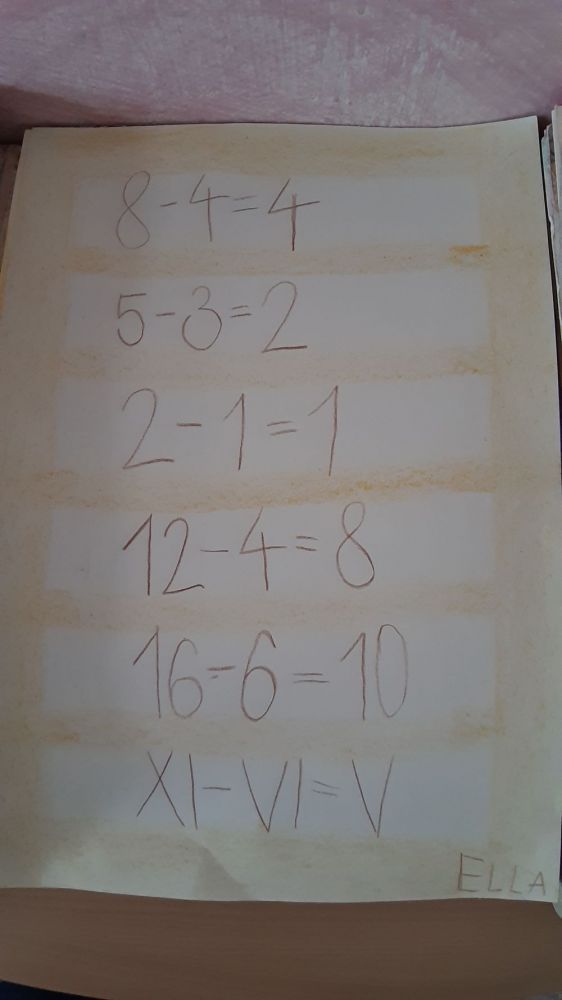 8-4=4
5-3=2
2-1=1
12-4=8
16-6=10
XI-VI=V
ELLA